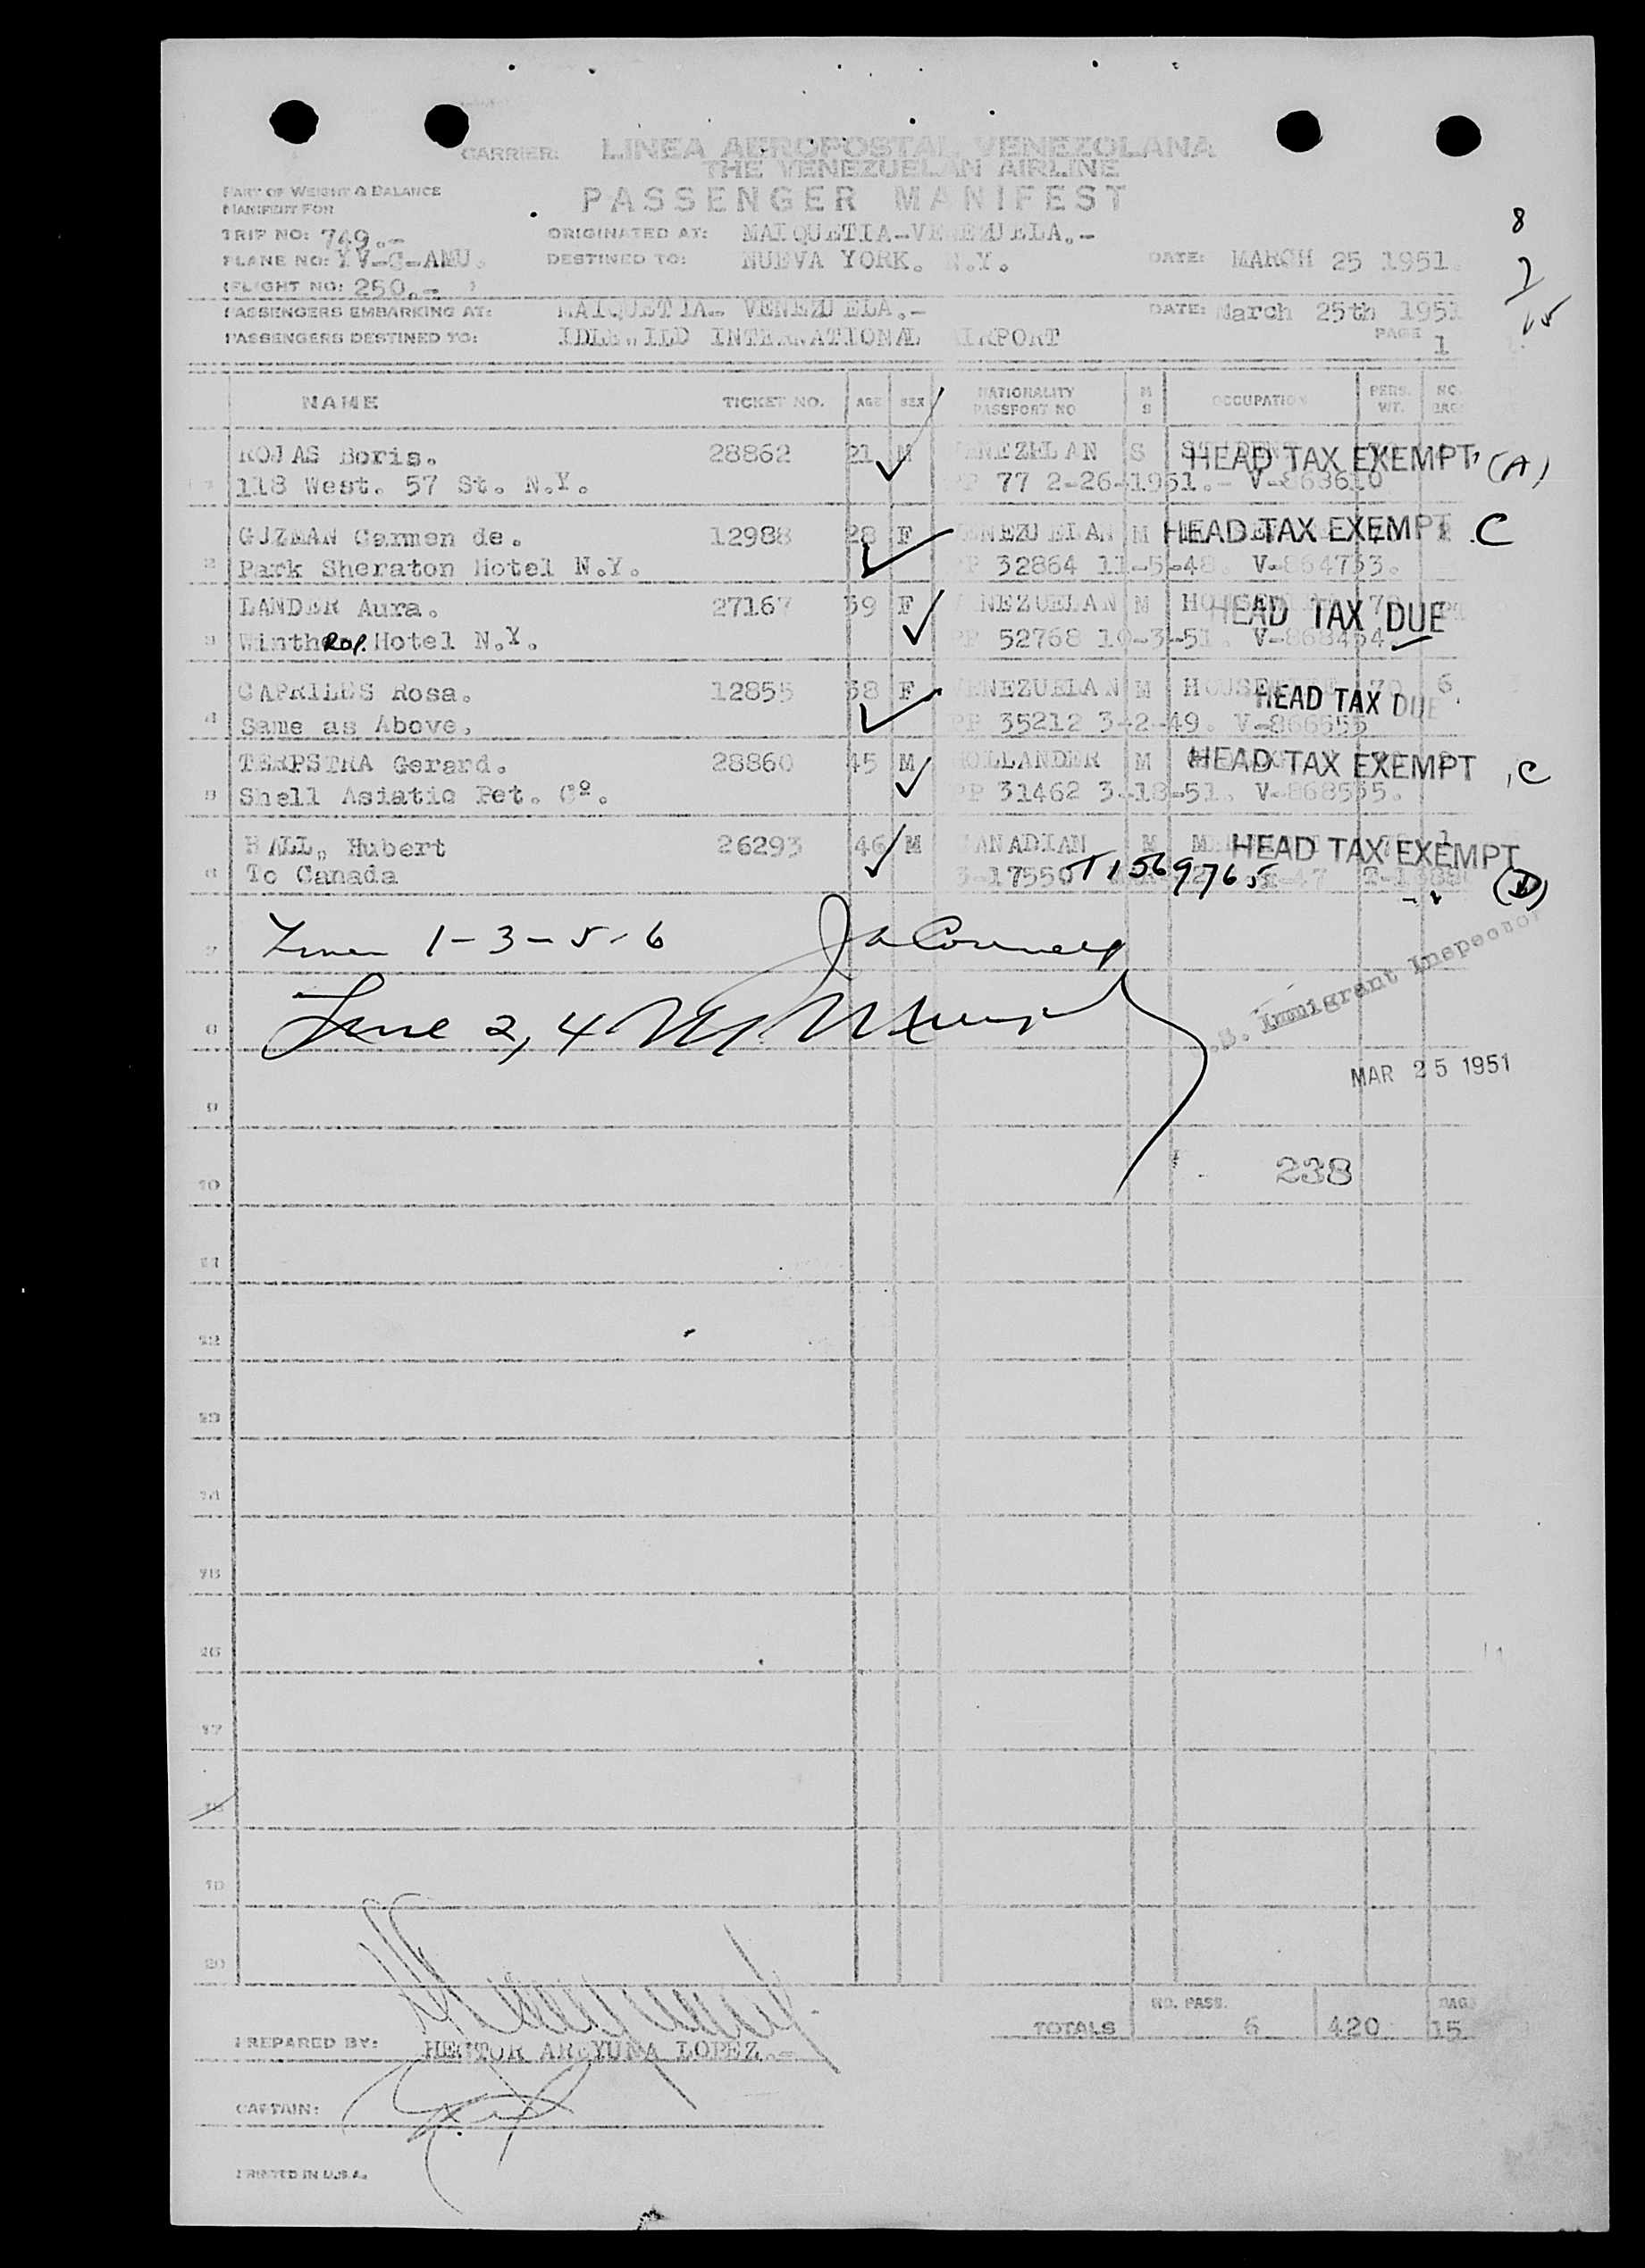 CARRIER: LINEA AEROPOSTAL VENEZOLANA
THE VENEZUELAN AIRLINE
PART OF WEIGHT & BALANCE
MANIFEST FOR
PASSENGER MANIFEST
8
TRIP NO: 749.-
ORIGINATED AT: MAIQUETIA-VENEZUELA.-
PLANE NO: YV-C-AMU.
DESTINED TO: NUEVA YORK. N.Y.
DATE: MARCH 25 1951.
(FLIGHT NO: 250.- )
PASSENGERS EMBARKING AT: MAIQUETIA- VENEZUELA.-
DATE: March 25th 1951
PASSENGERS DESTINED TO: IDLEWILD INTERNATIONAL AIRPORT
PAGE 1
NAME TICKET NO. AGE SEX NATIONALITY PASSPORT NO M S OCCUPATION PERS. WT. NO. BAG.
ROJAS Boris. 28862 21 M VENEZELAN S HEAD TAX EXEMPT (A)
118 West. 57 St. N.Y. PP 77 2-26-1951.- V-868610
GUZMAN Carmen de. 12988 28 F VENEZUELAN M HEAD TAX EXEMPT C
2 Park Sheraton Hotel N.Y. PP 32864 11-5-48. V-864733.
LANDER Aura. 27167 39 F VENEZUELAN M HEAD TAX DUE
3 Winthrop. Hotel N.Y. PP 52768 10-3-51. V-868454.
CAPRILES Rosa. 12855 38 F VENEZUELAN M HOUSEWIFE 70 6 HEAD TAX DUE
4 Same as Above. PP 35212 3-2-49. V-866555
TERPSTRA Gerard. 28860 45 M HOLLANDER M HEAD TAX EXEMPT C
5 Shell Asiatic Pet. Cº. PP 31462 3-18-51. V-868535.
BALL, Hubert 26293 46 M CANADIAN M HEAD TAX EXEMPT 1
6 To Canada 3-17550 T1569765 (D)
7 1-3-5-6
8 Line 2, 4
U.S. Immigrant Inspector
MAR 25 1951
9
238
10
11
12
13
14
15
16
17
18
19
20
NO. PASS. BAG.
TOTALS 6 420 15
PREPARED BY: HECTOR AREYUNA LOPEZ.-
CAPTAIN:
PRINTED IN U.S.A.